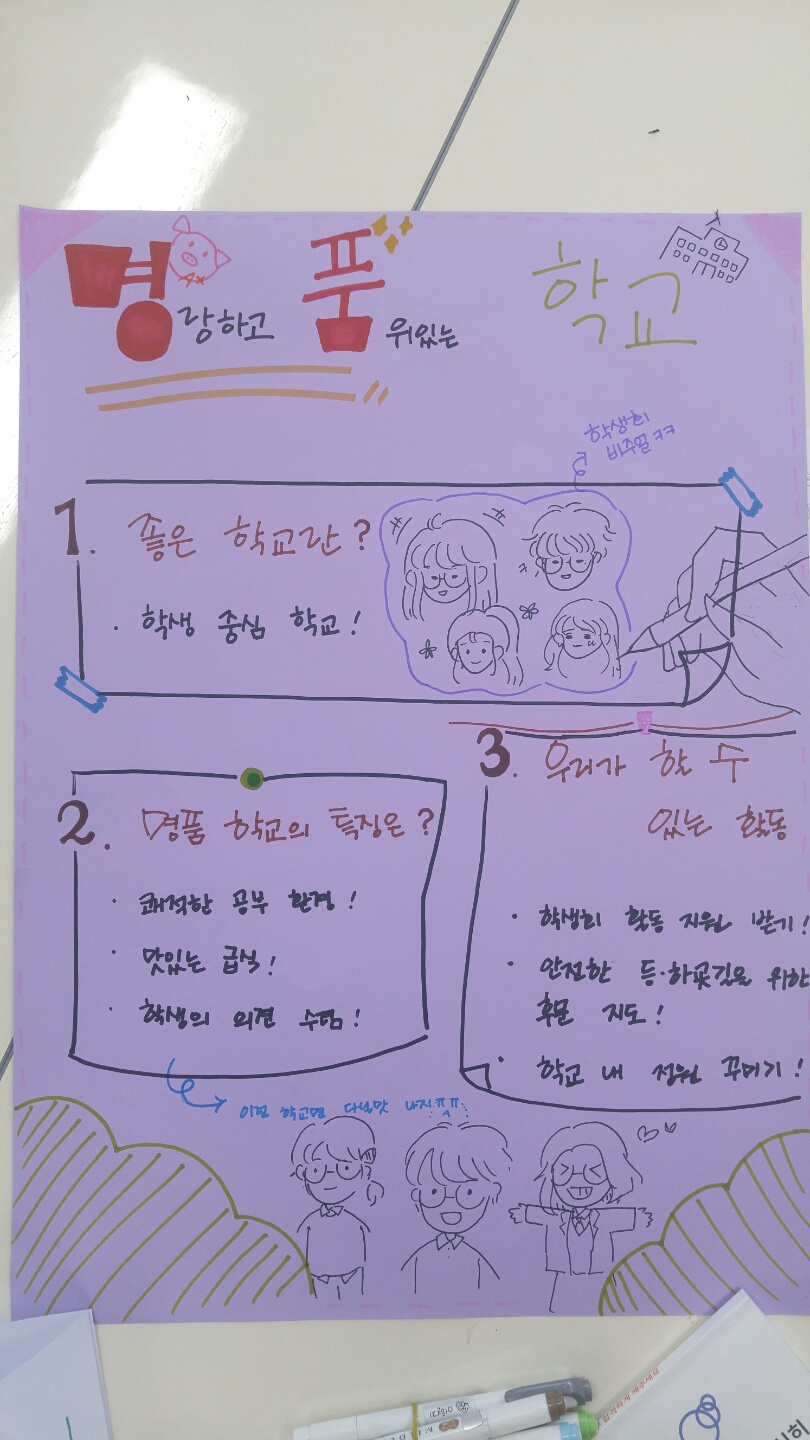 명랑하고 품위있는 학교
학생회
비주얼 ㅋㅋ
1. 좋은 학교란?
· 학생 중심 학교!
2. 명품 학교의 특징은?
· 쾌적한 공부 환경!
· 맛있는 급식!
· 학생의 의견 수렴!
이런 학교면 다닐맛 나지ㅠㅠ
3. 우리가 할 수
있는 활동
· 학생회 활동 지원 받기!
· 안전한 등·하굣길을 위한
후문 지도!
· 학교 내 정원 꾸미기!